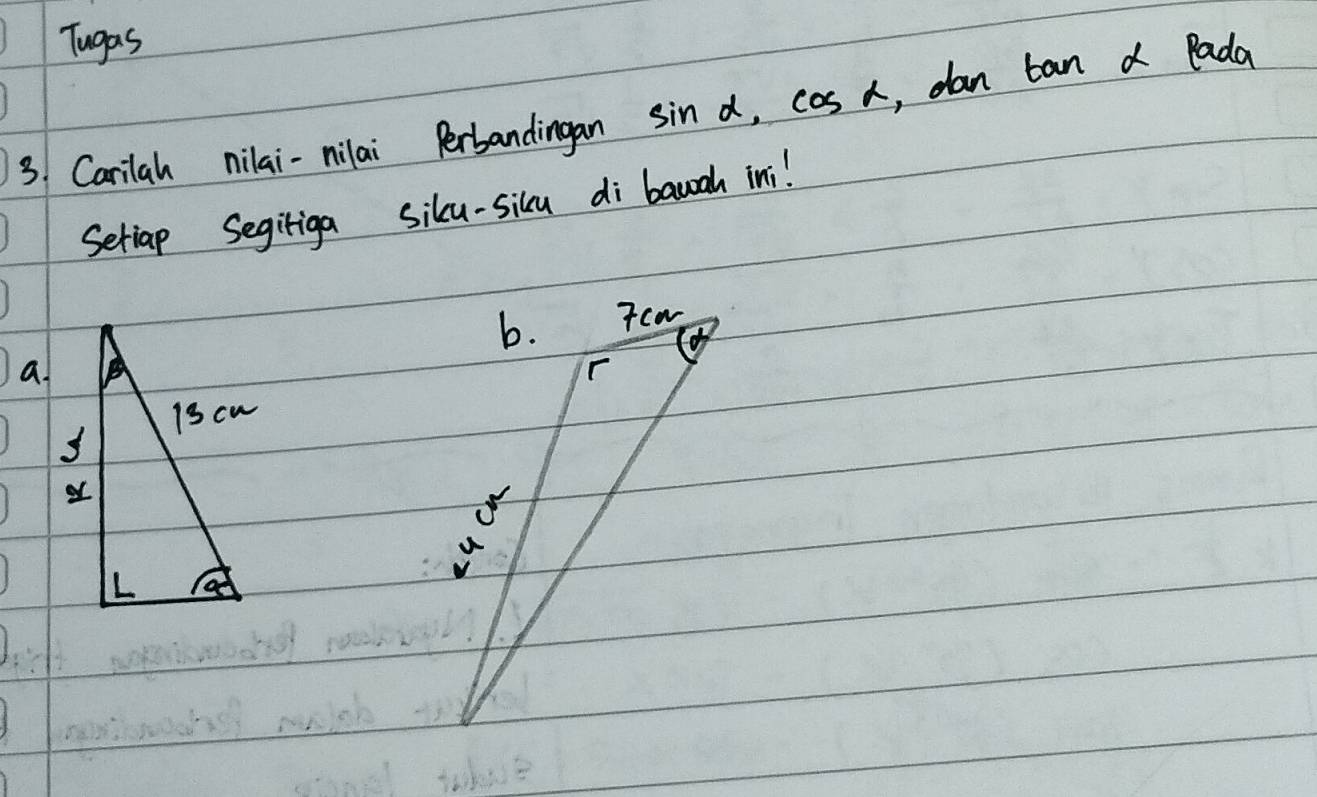 Tugas
3. Carilah nilai-nilai Perbandingan sin α, cos α, dan tan α Pada
Setiap Segitiga siku-siku di bawah ini!
a.
13 cm
α
b.
7 cm
α
cm